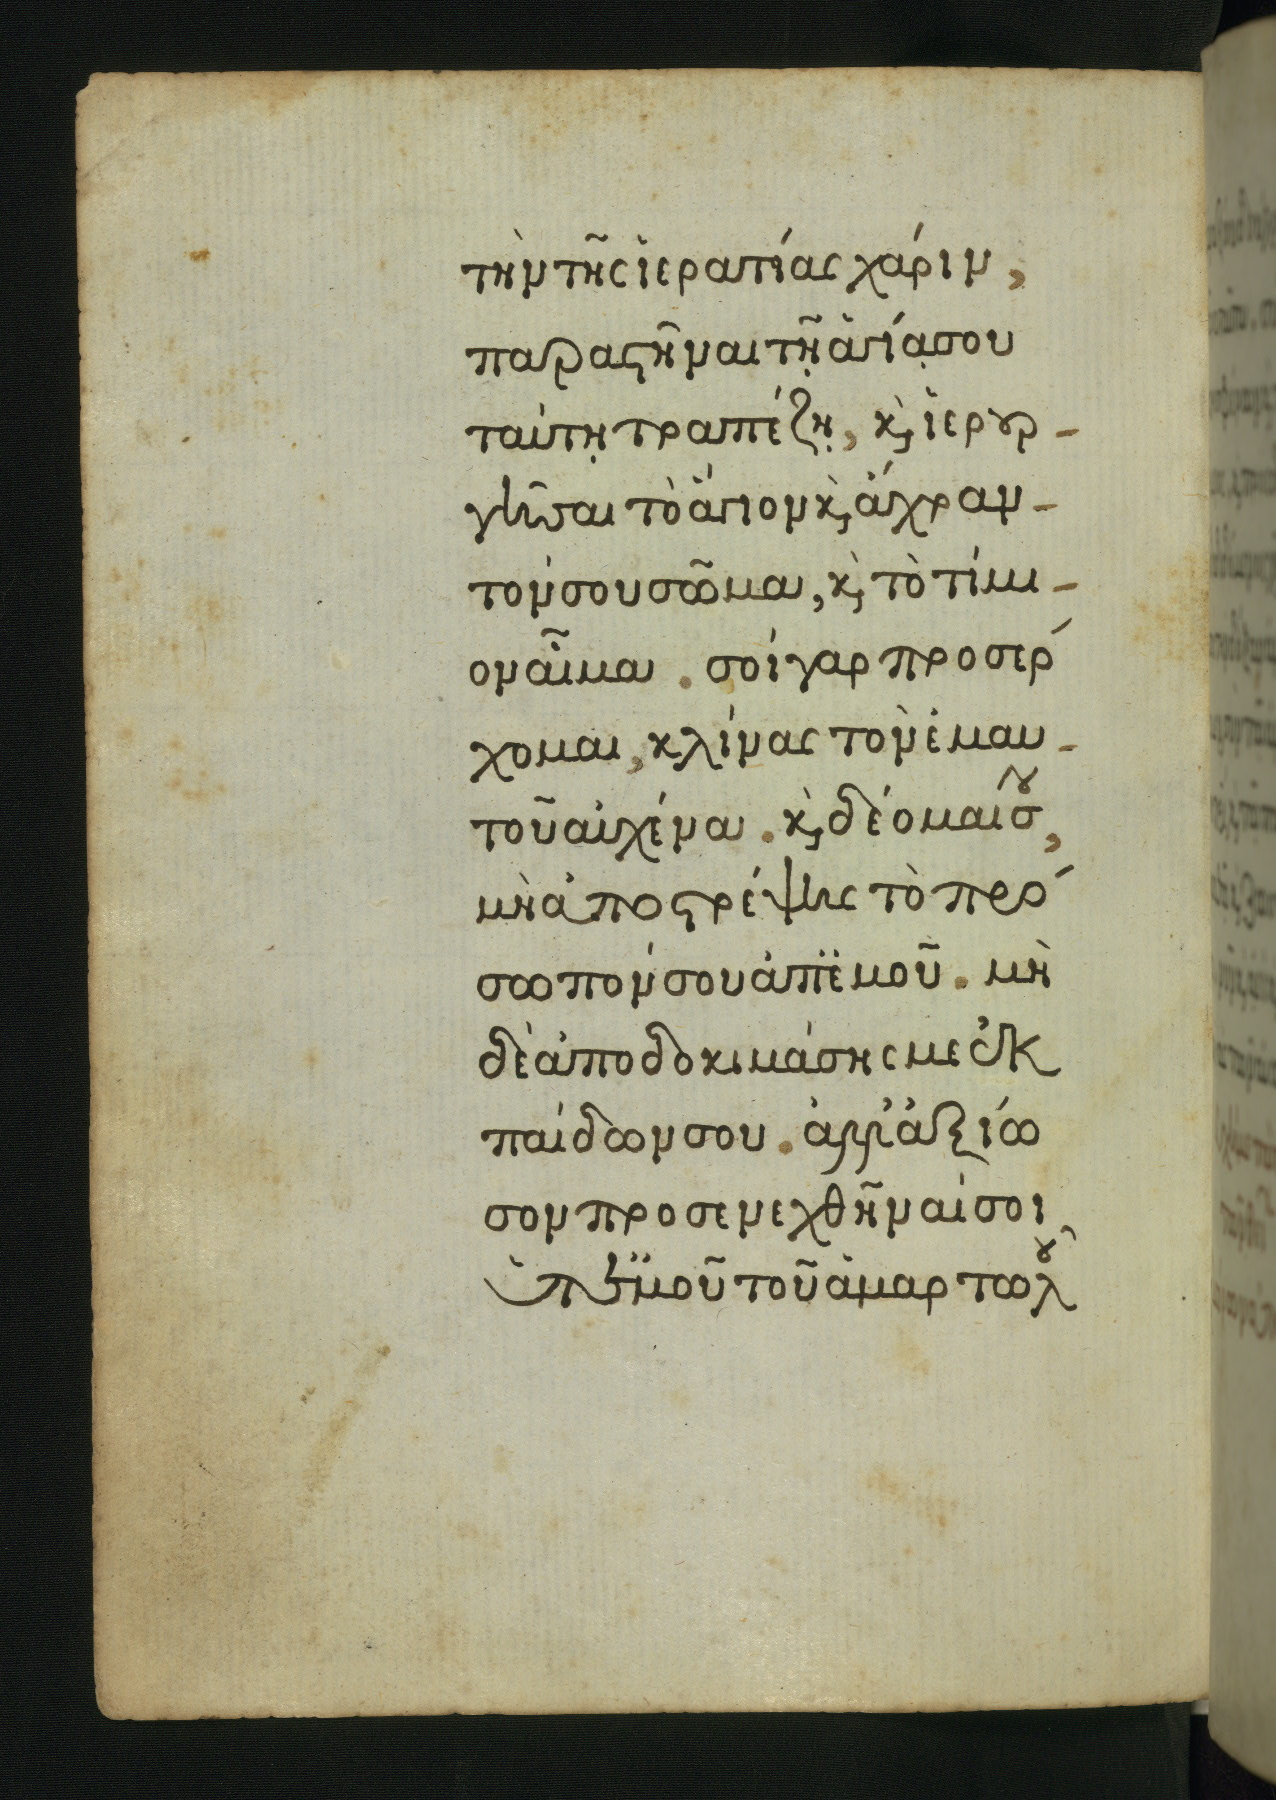 τὴν τῆς ἱερατίας χάριν,
παραστῆναι τῇ ἁγίᾳ σου
ταύτῃ τραπέζῃ, κ̀ ἱερουρ-
γῆσαι τὸ ἅγιον κ̀ ἄχραν-
τόν σου σῶμα, κ̀ τὸ τίμι-
ον αἷμα . σοί γαρ προσέρ
χομαι, κλίνας τὸν ἐμαυ-
τοῦ αὐχένα . κ̀ δέομαί σου,
μὴ ἀποστρέψῃς τὸ πρό
σωπόν σου ἀπ' ἐμοῦ . μὴ
δὲ ἀποδοκιμάσης με ἐκ
παίδων σου . ἀλλ' ἀξίω
σον προσενεχθῆναί σοι
ὑπ' ἐμοῦ τοῦ ἁμαρτωλοῦ